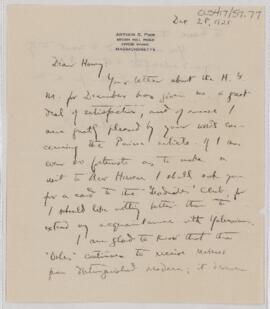 CUSH17/59.77
Dec 28, 1925
ARTHUR S. PIER
BRUSH HILL ROAD
HYDE PARK
MASSACHUSETTS
Dear Harvey
Your letter about the H. G
M. for December has given me a great
deal of satisfaction, and of course I
am greatly pleased by your words con-
cerning the Paine article. If I am
ever so fortunate as to make a
visit to New Haven I shall ask you
for a card to the " Club, for
I should like nothing better than to
extend my acquaintance with Yalensians.
I am glad to know that the
continues to receive
from distinguished readers; it